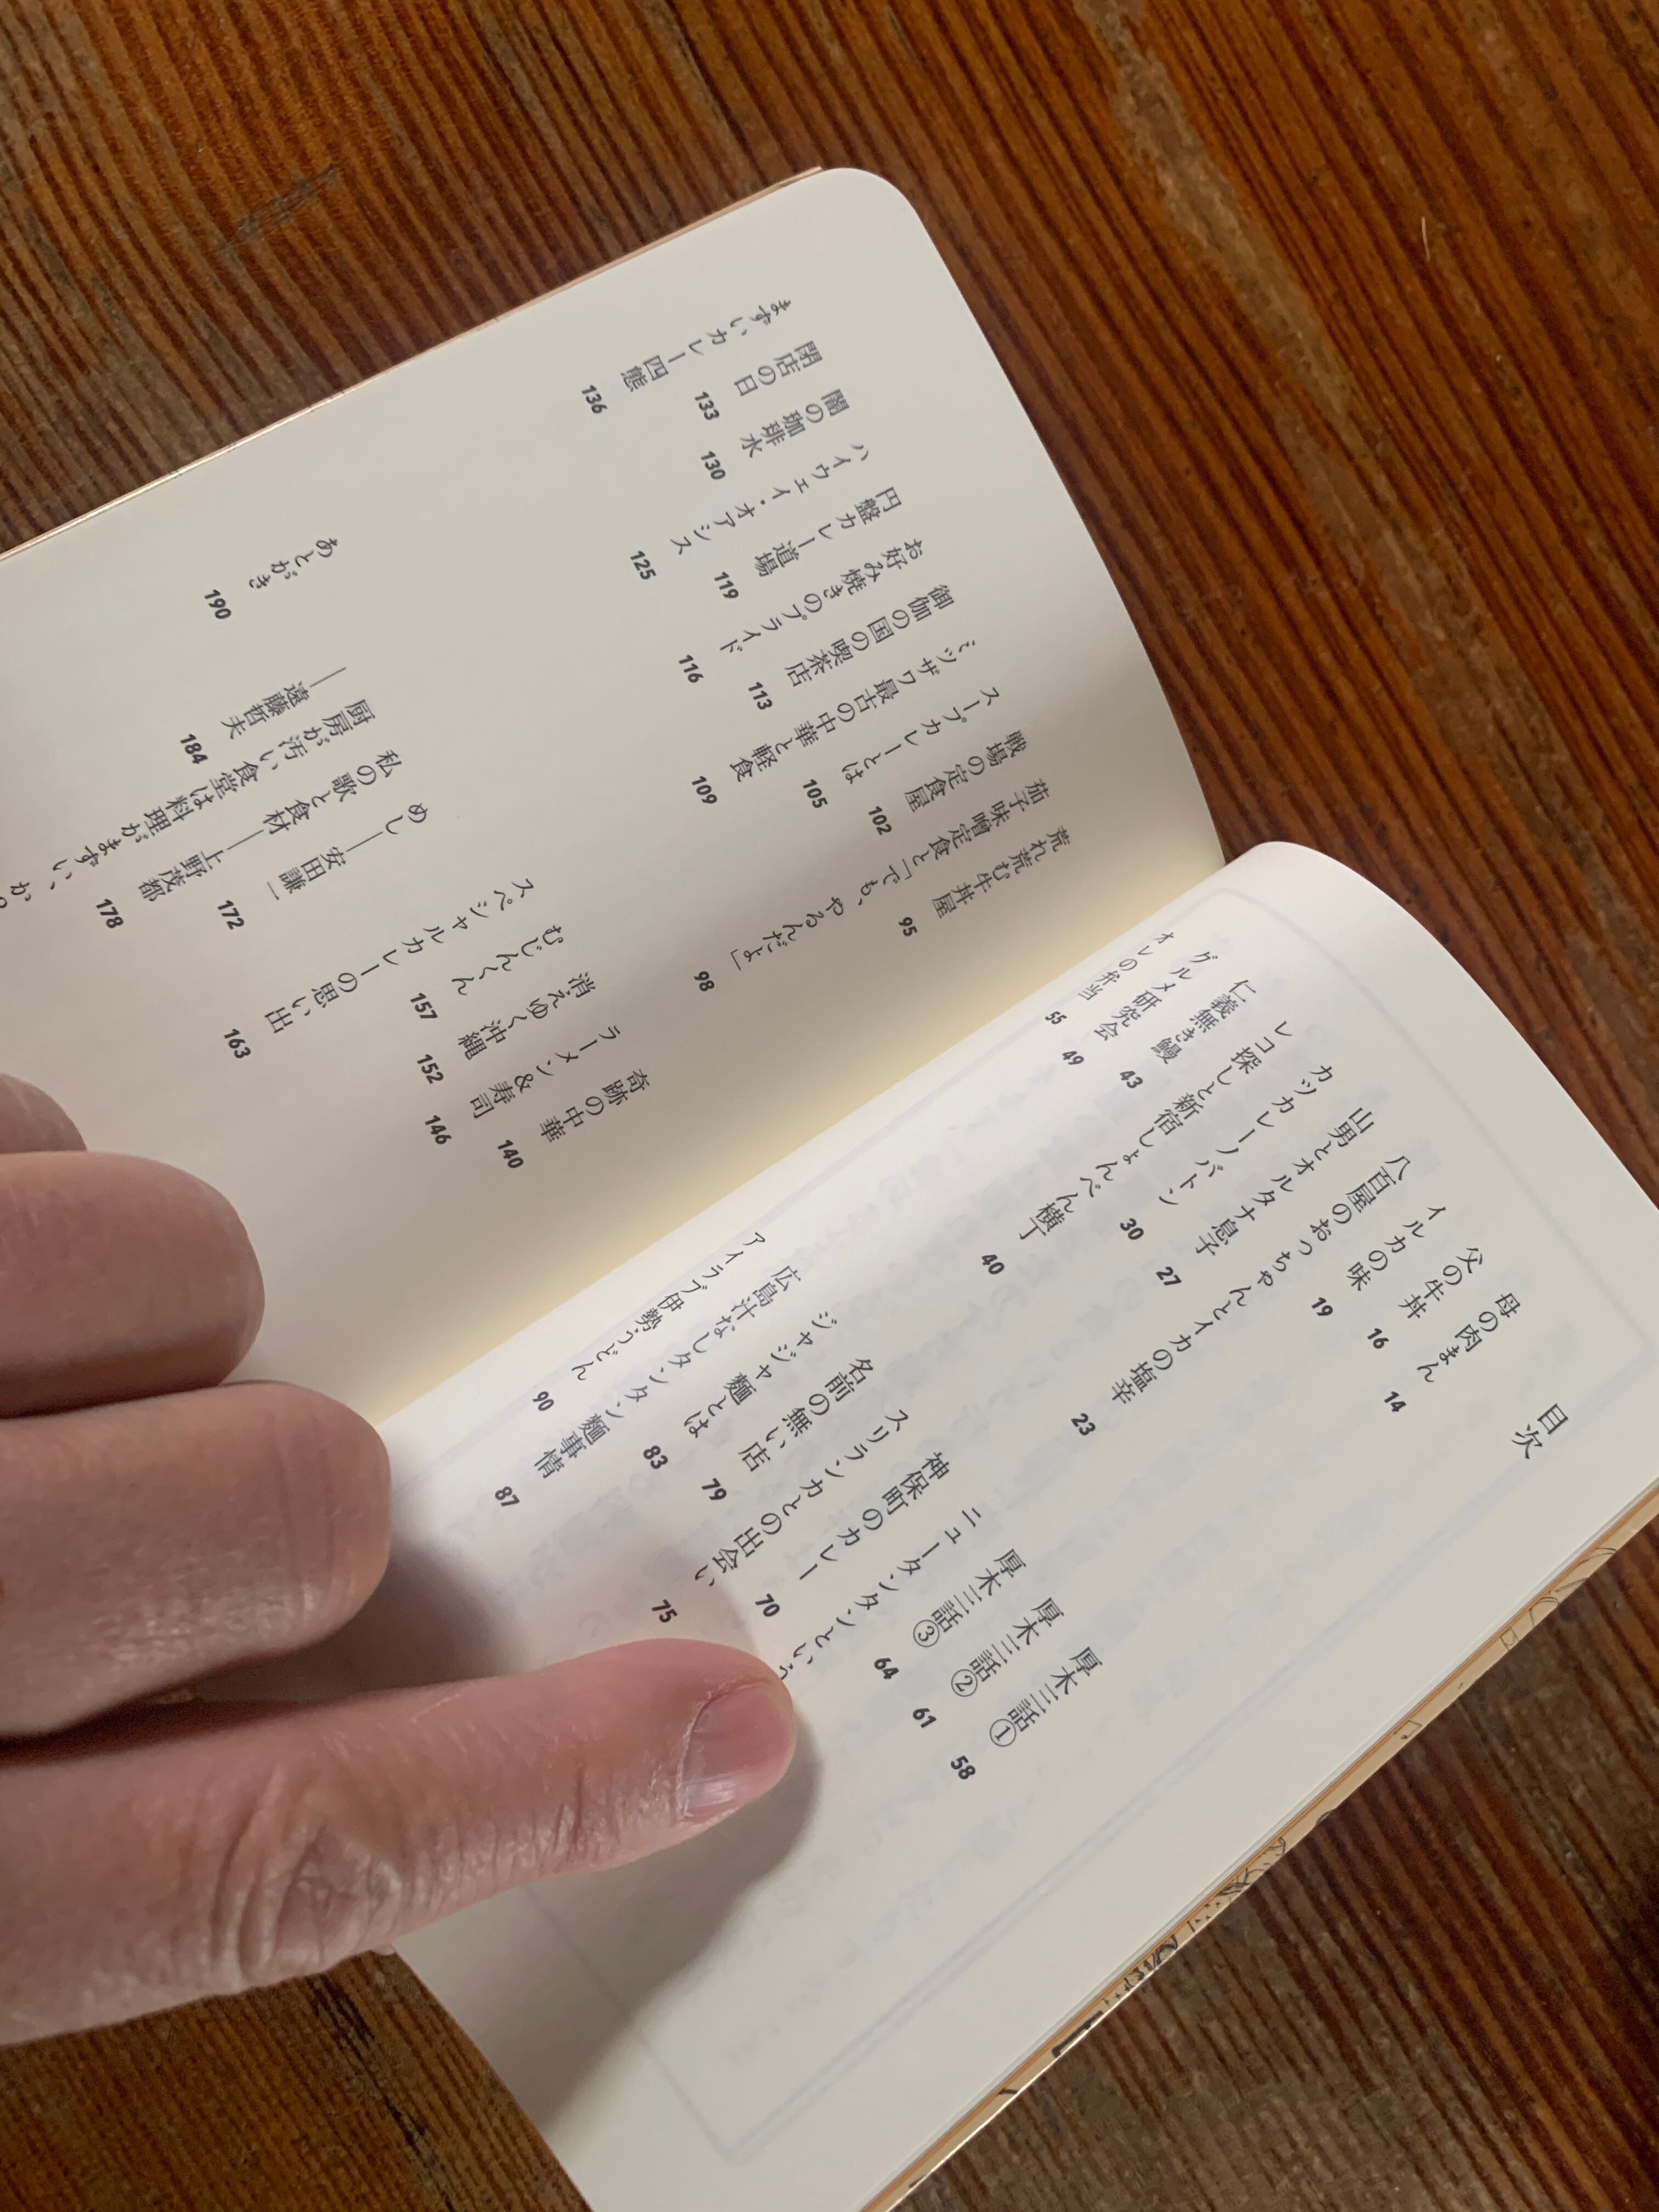 目次
母の肉まん 14
父の牛丼 16
イルカの味 19
八百屋のおっちゃんとイカの塩辛 23
山男とオルタナ息子 27
カツカレーノバトン 30
レコ探しと新宿しょんべん横丁 40
仁義無き鰻 43
グルメ研究会 49
オレの弁当 55
厚木三話① 58
厚木三話② 61
厚木三話③ 64
ニュータンタンという
神保町のカレー 70
スリランカとの出会い 75
名前の無い店 79
ジャジャ麺とは 83
広島汁なしタンタン麺事情 87
アイラブ伊勢うどん 90
荒れ荒む牛丼屋 95
茄子味噌定食と「でも、やるんだよ」 98
戦場の定食屋 102
スープカレーとは 105
ミツザワ 最古の中華と軽食 109
御伽の国の喫茶店 113
お好み焼きのプライド 116
円盤カレー道場 119
ハイウェイ・オアシス 125
闇の珈琲水 130
閉店の日 133
まずいカレー四態 136
奇跡の中華 140
ラーメン&寿司 146
消えゆく沖縄 152
むじんくん 157
スペシャルカレーの思い出 163
めし──安田謙一 172
私の歌と食材──上野茂都 178
厨房が汚い食堂は料理がまずい、か?
──遠藤哲夫 184
あとがき 190